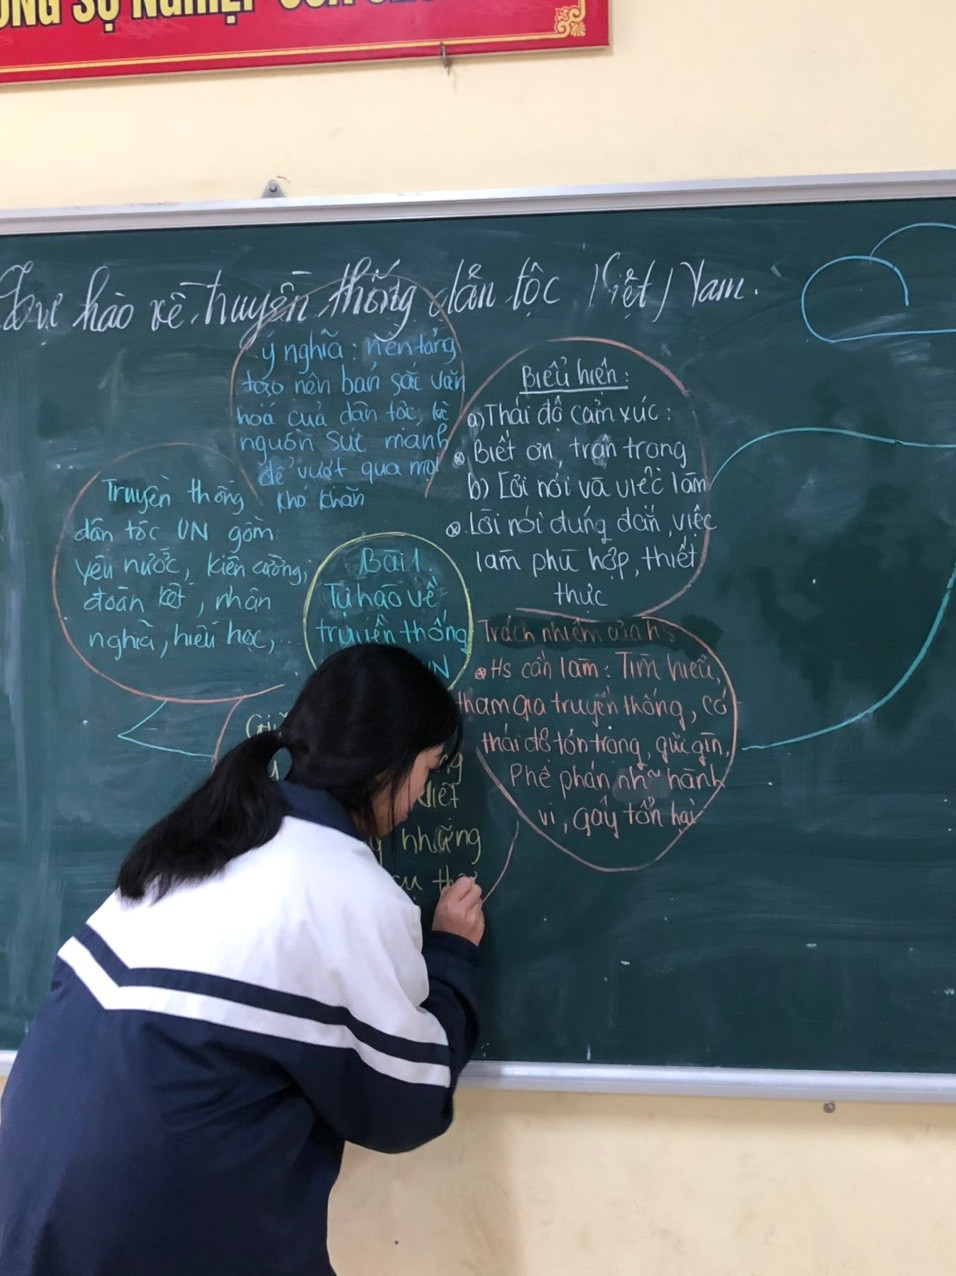 SỰ NGHIỆP CỦA
Tự hào về truyền thống dân tộc Việt Nam.
ý nghĩa: nền tảng
tạo nên bản sắc văn
hoá của dân tộc, là
nguồn sức mạnh
để vượt qua mọi
khó khăn
Biểu hiện:
a) Thái độ cảm xúc:
Biết ơn, trân trọng
b) Lời nói và việc làm
Lời nói đúng đắn, việc
làm phù hợp, thiết
thực
Truyền thống
dân tộc VN gồm:
yêu nước, kiên cường,
đoàn kết, nhân
nghĩa, hiếu học,...
Bài 1.
Tự hào về
truyền thống
VN
Trách nhiệm của hs
Hs cần làm: Tìm hiểu,
tham gia truyền thống, có
thái độ tôn trọng, giữ gìn,
Phê phán nh~ hành
vi, gây tổn hại
những